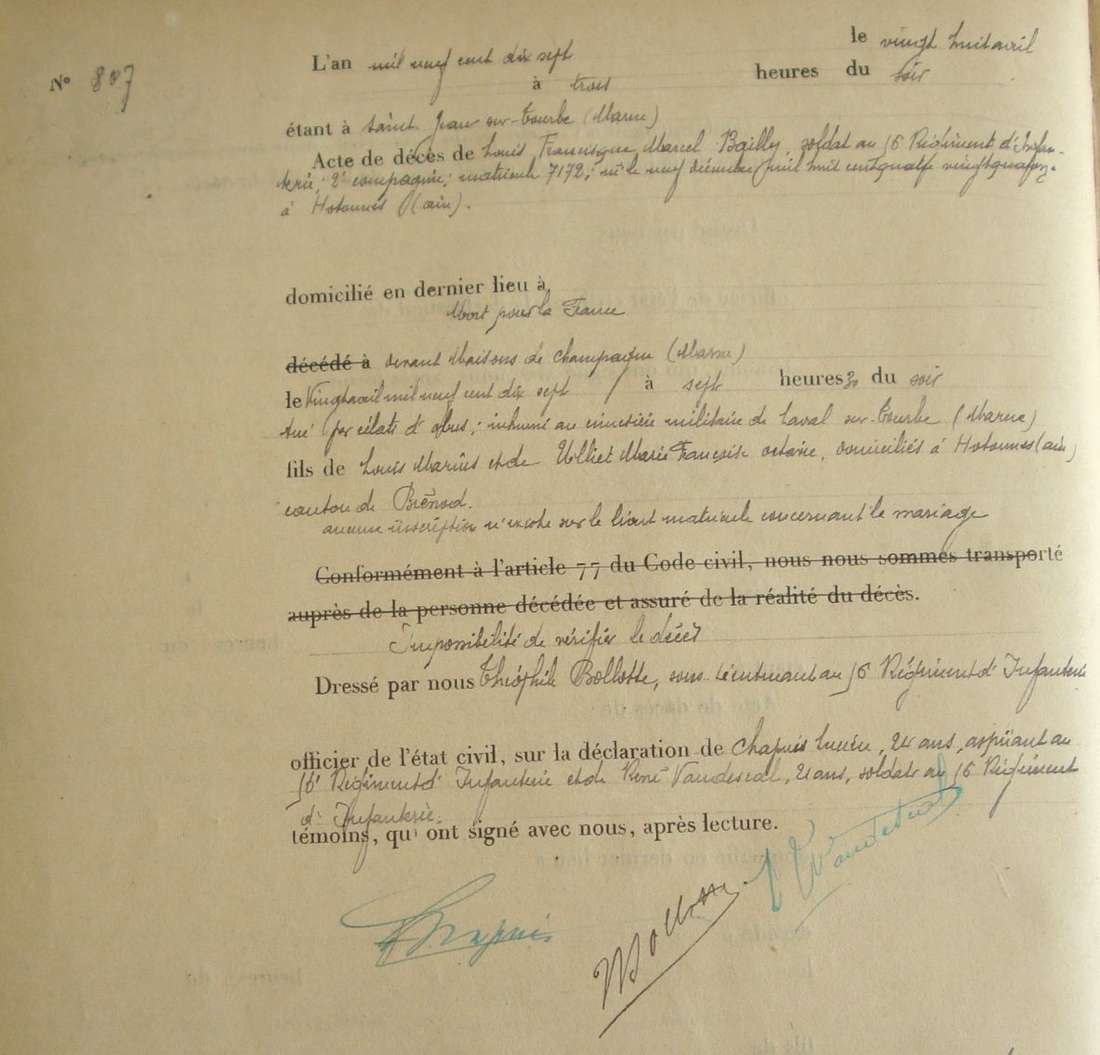 L'an mil neuf cent dix sept le vingt huit avril
N° 807
à trois heures du soir
étant à Saint Jean sur-Tourbe (Marne)
Acte de décès de Louis Marcel Bailly, soldat au 56 Régiment d'Infan-
terie, 2e compagnie, matricule 7172, né le neuf décembre mil huit cent quatre vingt quatorze
à Hotonnes (ain).
domicilié en dernier lieu à
Mort pour la France
décédé à devant Maisons de Champagne (Marne)
le Vingt avril mil neuf cent dix sept / à sept heures 30 du soir
tué par éclats d'obus; inhumé au cimetière militaire de Laval sur-Tourbe (Marne)
fils de Louis Marius et de Marie Françoise octavie, domiciliés à Hotonnes (ain)
canton de Brénod.
aucune inscription n'existe sur le livret matricule concernant le mariage
Conformément à l'article 77 du Code civil, nous nous sommes transporté
auprès de la personne décédée et assuré de la réalité du décès.
Impossibilité de vérifier le décès
Dressé par nous Théophile Bollotte, sous-lieutenant au 56 Régiment d'Infanterie
officier de l'état civil, sur la déclaration de Chapuis Lucien, 24 ans, aspirant au
56e Régiment d'Infanterie et de René 21 ans, soldat au 56 Régiment
d'Infanterie.
témoins, qui ont signé avec nous, après lecture.
Chapuis Bollotte